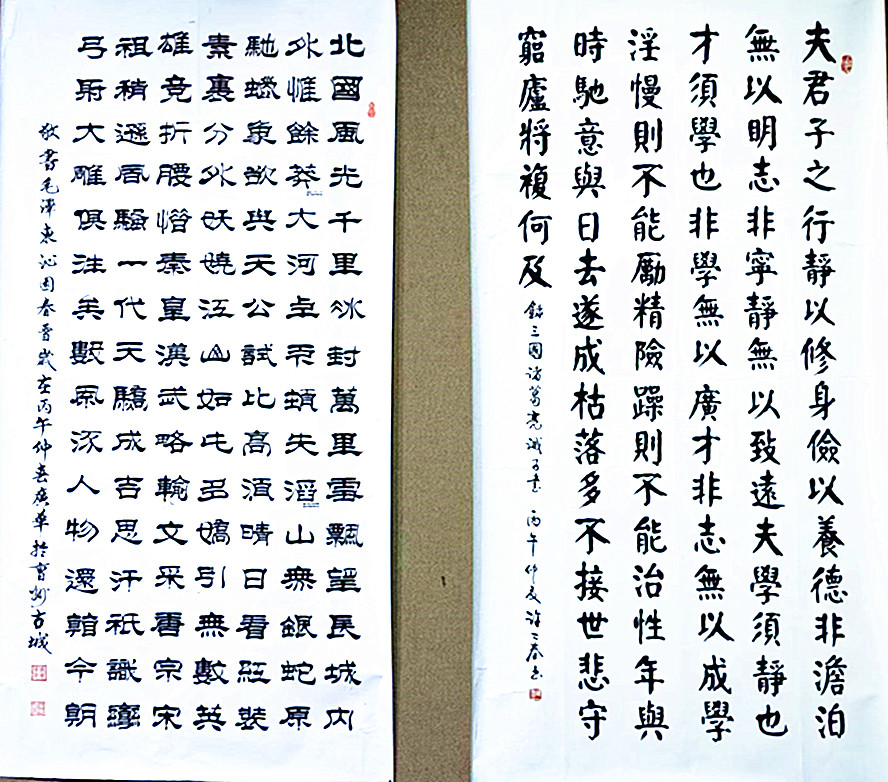 夫君子之行靜以修身儉以養德非澹泊
無以明志非寧靜無以致遠夫學須靜也
才須學也非學無以廣才非志無以成學
淫慢則不能勵精險躁則不能治性年與
時馳意與日去遂成枯落多不接世悲守
窮廬將複何及 錄三國諸葛亮誡子書 丙午仲夏許三春書
北國風光千里冰封萬里雪飄望長城内
外惟餘莽大河上下頓失滔山舞銀蛇原
馳蠟象欲與天公試比高須晴日看紅裝
素裹分外妖嬈江山如此多嬌引無數英
雄競折腰惜秦皇漢武略輸文采唐宗宋
祖稍遜風騷一代天驕成吉思汗祇識彎
弓射大雕俱往矣數風流人物還看今朝
敬書毛澤東沁園春雪歲在丙午仲春廣華於曹州古城